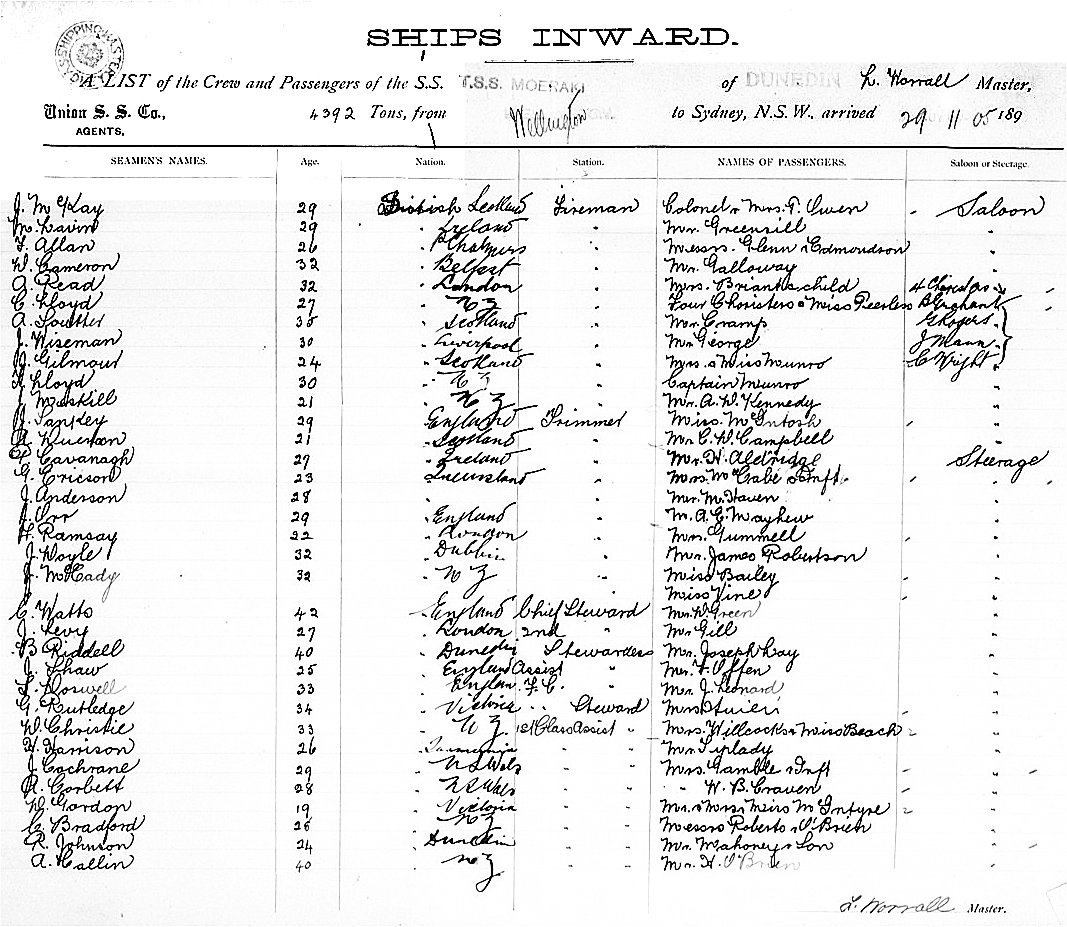 SHIPS INWARD.
A LIST of the Crew and Passengers of the S.S. T.S.S. MOERAKI of DUNEDIN L. Worrall Master,
Union S. S. Co., AGENTS, 4392 Tons, from Wellington to Sydney, N.S.W., arrived 29 11 05 189
SEAMEN'S NAMES. Age. Nation. Station. NAMES OF PASSENGERS. Saloon or Steerage.
J. McKay 29 British Scotland Fireman Colonel & Mrs. T. Owen " Saloon
M. Lavin 29 " Ireland " Mr. Greensill "
F. Allan 26 " P Chalmers " Messrs. Glenn & Edmondson "
W. Cameron 32 " Belfast " Mr. Galloway "
A. Read 32 " London " Mrs. Briant & child 4 Choristers "
C. Lloyd 27 " N Z " Four Choristers & Miss Peerless
A. Soutter 35 " Scotland " Mr. Cramp G Rogers "
J. Wiseman 30 " Liverpool " Mr. George J Mann "
Gilmour 24 " Scotland " Mrs. & Miss Munro C Wright "
Lloyd 30 " N Z " Captain Munro "
J. Maskill 21 " N Z " Mr. A. W. Kennedy "
Sankey 29 " England Trimmer Miss. McIntosh "
21 " Scotland " Mr. C. W. Campbell "
Cavanagh 27 " Ireland " Mr. H. Aldridge Steerage
G. Ericson 23 " Queensland " Mrs. McCabe & Inft. "
J. Anderson 28 " " Mr. M. Haven "
J. Orr 29 " England " M. A. E. Mayhew "
Ramsay 22 " London " Mrs. Gummell "
J. Doyle 32 " Dublin " Mr. James Robertson "
J. McHady 32 " N Z " Miss Bailey "
Miss Vine "
C. Watts 42 " England Chief Steward Mr. W. Green "
J. Levy 27 " London 2nd " Mr. Gill "
B Riddell 40 " Dunedin Stewardess Mr. Joseph Kay "
J. Shaw 25 " England Assist " Mr. F. Offen "
Boswell 33 " Englan. F. C. " Mr. J. Leonard "
G. Rutledge 34 " Victoria " " Steward Mrs "
W. Christie 33 " N Z. 1st Class Assist " Mrs. Willcocks & Miss Beach "
H. Harrison 26 " Tasmania " " Mr. Siplady "
J. Cochrane 29 " N S Wals " " Mrs. Gamble & Inft "
R. Corbett 28 " N S Wals " " " W. B. Craven "
W. Gordon 19 " Victoria " " Mr. & Mrs. Miss McIntyre "
C. Bradford 25 " N Z " " Messrs Roberts & O'Brien "
R. Johnson 24 " Dunedin " " Mr. Mahoney & Son "
A. Callin 40 " N Z " " Mr. H. O'Brien "
L. Worrall Master.